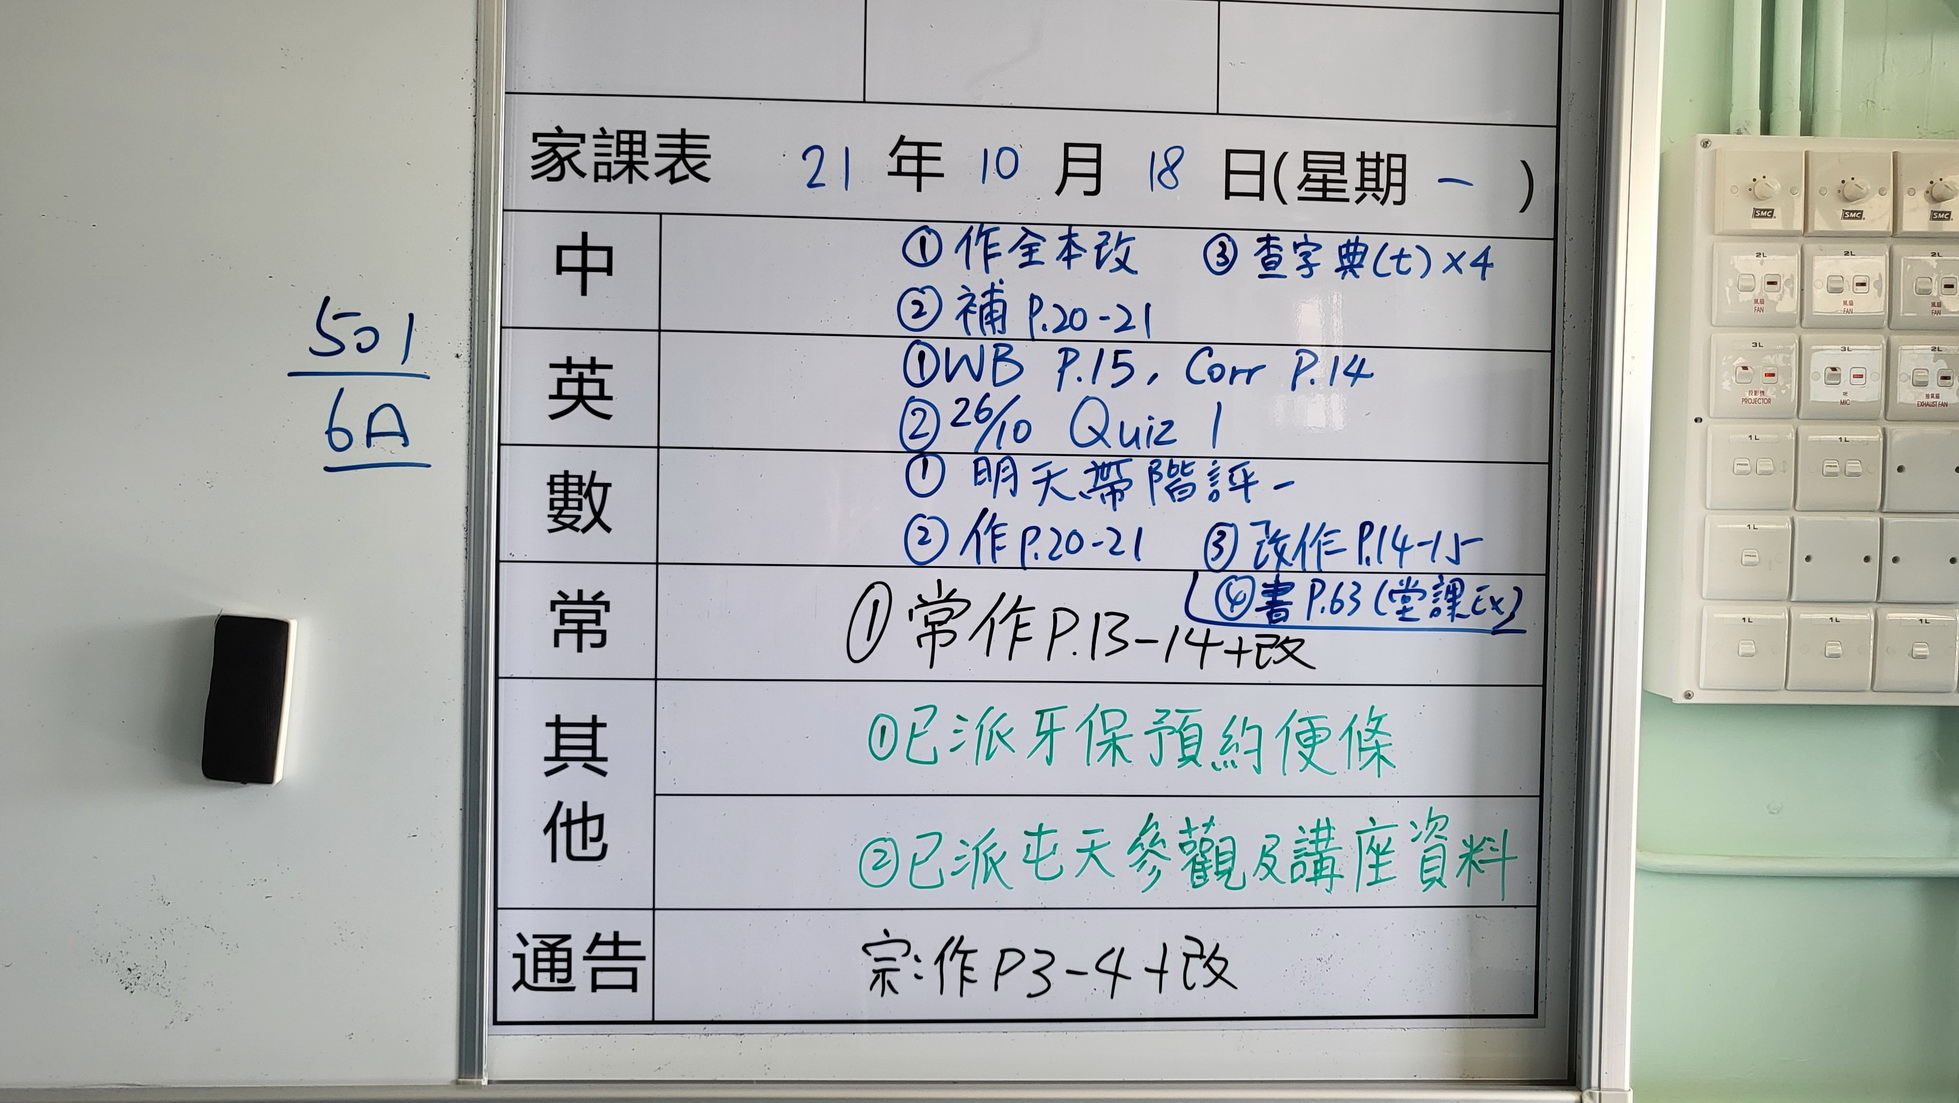 家課表 21 年 10 月 18 日(星期 一 )
中
① 作全本改 ③ 查字典(七)×4
② 補 P.20-21
英
① WB P.15, Corr P.14
② 26/10 Quiz 1
數
① 明天帶階評一
② 作P.20-21 ③ 改作 P.14-15
④書 P.63 (堂課Ex)
常
① 常作P.13-14+改
其他
①已派牙保預約便條
②已派屯天參觀及講座資料
通告
宗:作P3-4+改
501
6A
SMC SMC SMC
2L 2L 2L
風扇 風扇 風扇
FAN FAN FAN
3L 3L 2L
投影機 咪 抽氣扇
PROJECTOR MIC EXHAUST FAN
1L 1L
1L
1L 1L 1L